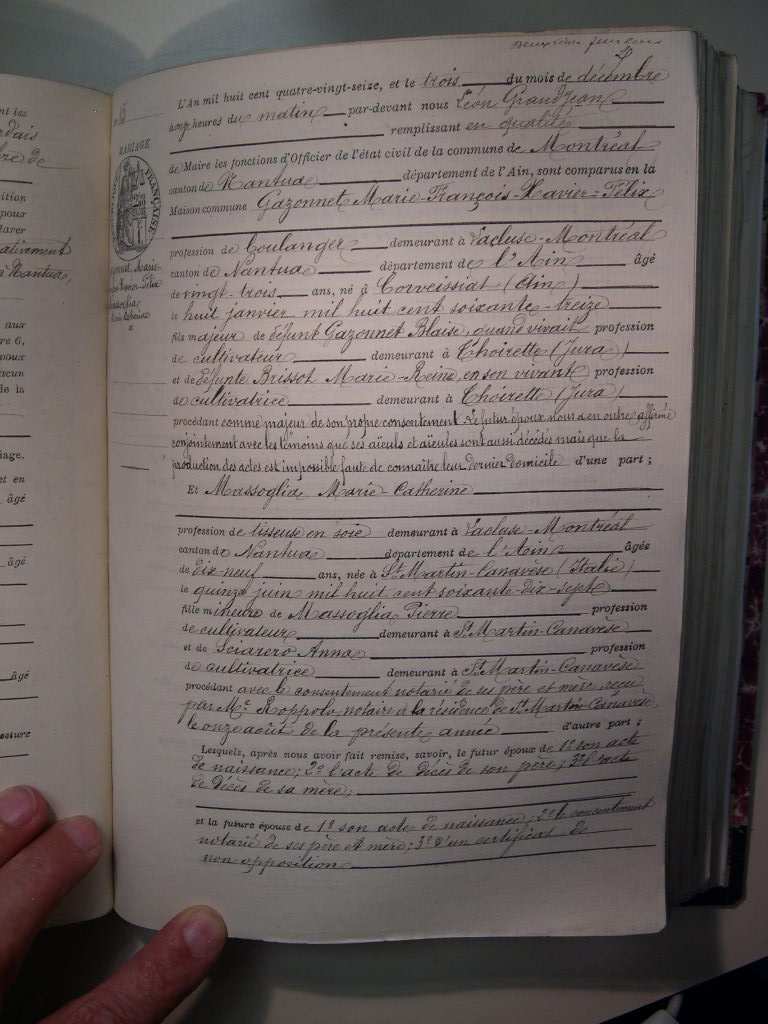 Deuxième feuillet
L'An mil huit cent quatre-vingt-seize, et le trois du mois de décembre
à onze heures du matin par-devant nous Léon Grandjean
remplissant en qualité
de Maire les fonctions d'Officier de l'état civil de la commune de Montréal
canton de Nantua département de l'Ain, sont comparus en la
Maison commune Gazonnet Marie-François-Xavier=Félix
profession de boulanger demeurant à Lacluse-Montréal
canton de Nantua département de l'Ain âgé
de vingt-trois ans, né à Corveissiat (Ain)
le huit janvier mil huit cent soixante-treize
fils majeur de défunt Gazonnet Blaise, quand vivait profession
de cultivateur demeurant à Thoirette (Jura)
et de défunte Brissot Marie-Reine, en son vivant profession
de cultivatrice demeurant à Thoirette (Jura)
procédant comme majeur de son propre consentement Le futur époux nous a en outre affirmé
conjointement avec les témoins que ses aïeuls et aïeules sont aussi décédés mais que la
production des actes est impossible faute de connaître leur dernier domicile d'une part ;
Et Massoglia Marie-Catherine
profession de tisseuse en soie demeurant à Lacluse-Montréal
canton de Nantua département de l'Ain âgée
de dix-neuf ans, née à St Martin-Canavèse (Italie)
le quinze juin mil huit cent soixante-dix-sept
fille mineure de Massoglia Pierre profession
de cultivateur demeurant à St Martin-Canavèse
et de Sciarero Anna profession
de cultivatrice demeurant à St Martin-Canavèse
procédant avec le consentement notarié de ses père et mère, reçu
par Me Roppolo, notaire à la résidence de St Martin-Canavèse,
le onze août de la présente année d'autre part ;
Lesquels, après nous avoir fait remise, savoir, le futur époux de 1° son acte
de naissance; 2° l'acte de décès de son père; 3° l'acte
de décès de sa mère;
et la future épouse de 1° son acte de naissance; 2° le consentement
notarié de ses père et mère; 3° d'un certificat de
non opposition
MARIAGE
FRANÇAISE
Gazonnet Marie-
François-Xavier-Félix
Massoglia
Marie-Catherine